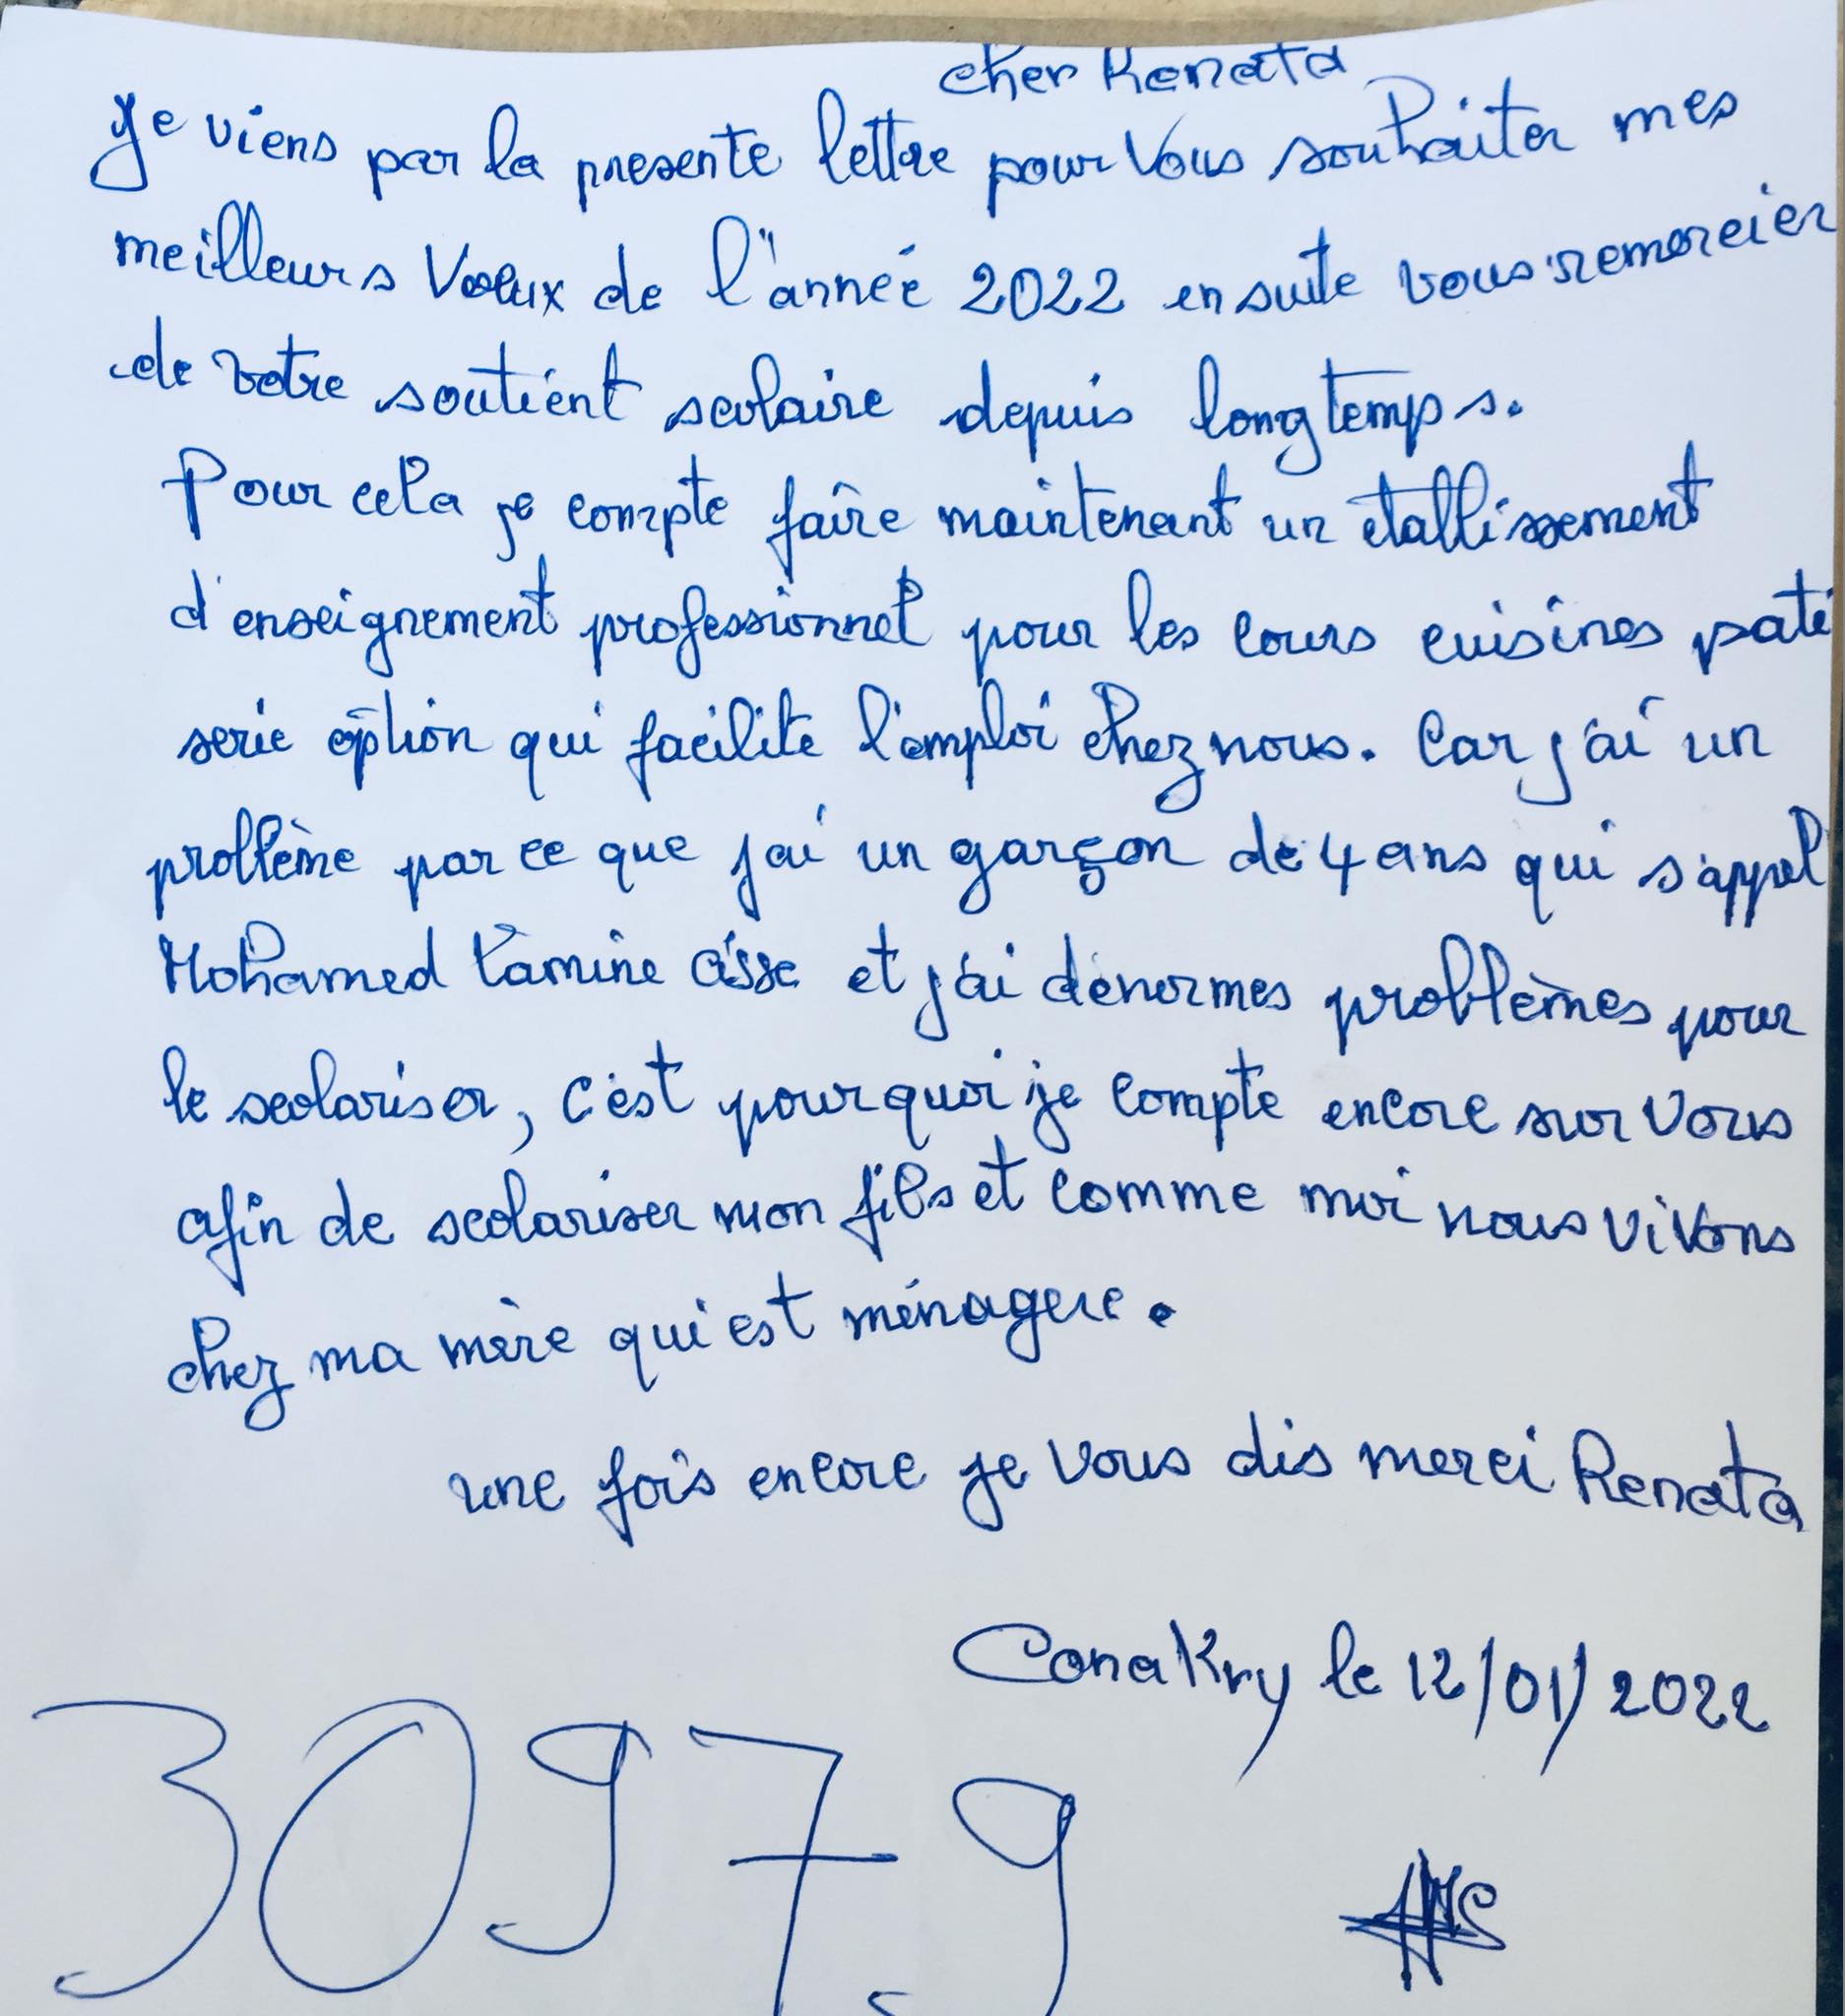 cher Renata
Je viens par la presente lettre pour Vous souhaiter mes
meilleurs Voeux de l'année 2022 ensuite vous remercier
de votre soutient scolaire depuis longtemps.
Pour cela je compte faire maintenant un etablissement
d'enseignement professionnel pour les cours cuisines pati
serie option qui facilite l'emploi chez nous. Car j'ai un
problème par ce que j'ai un garçon de 4 ans qui s'appel
Mohamed Lamine Cisse et j'ai dénormes problèmes pour
le scolariser, c'est pourquoi je compte encore sur Vous
afin de scolariser mon fils et comme moi nous vivons
chez ma mère qui est ménagere.
une fois encore je vous dis merci Renata
Conakry le 12/01/2022
30979